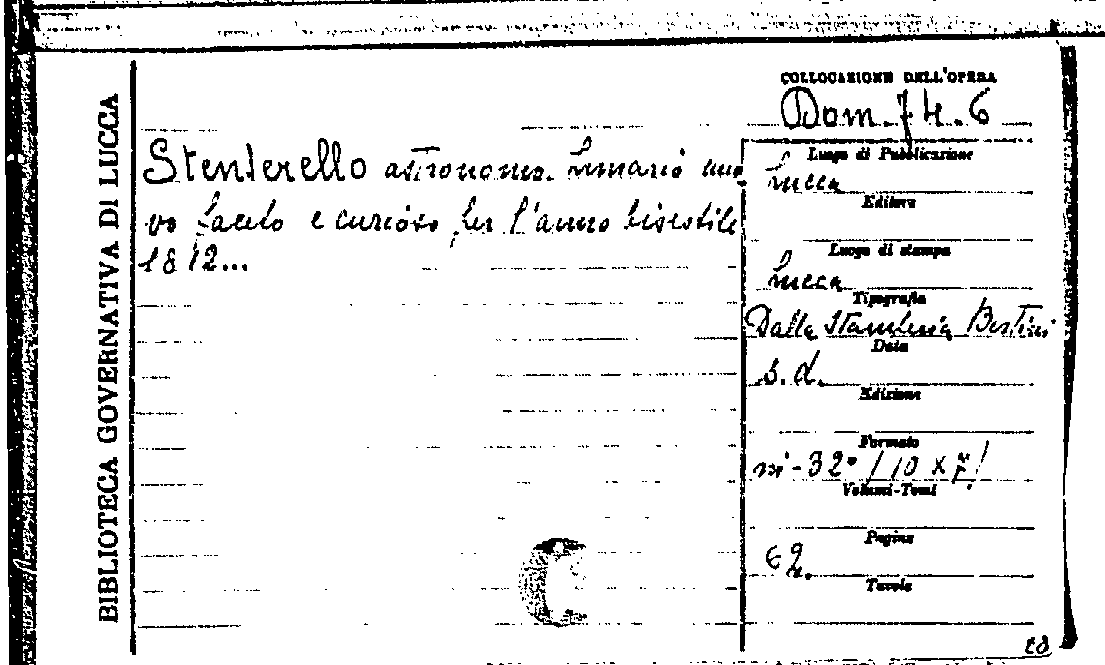 BIBLIOTECA GOVERNATIVA DI LUCCA
COLLOCAZIONE DELL'OPERA
Dom. 74.6
Stenterello astronomo. Lunario nuo
vo faceto e curioso per l'anno bisestile
1812...
Luogo di Pubblicazione
Lucca
Editore
Luogo di stampa
Lucca
Tipografia
Dalla Stamperia Bertini
Data
s.d.
Edizione
Formato
in-32° /10 x
Volumi-Tomi
Pagine
62.
Tavole